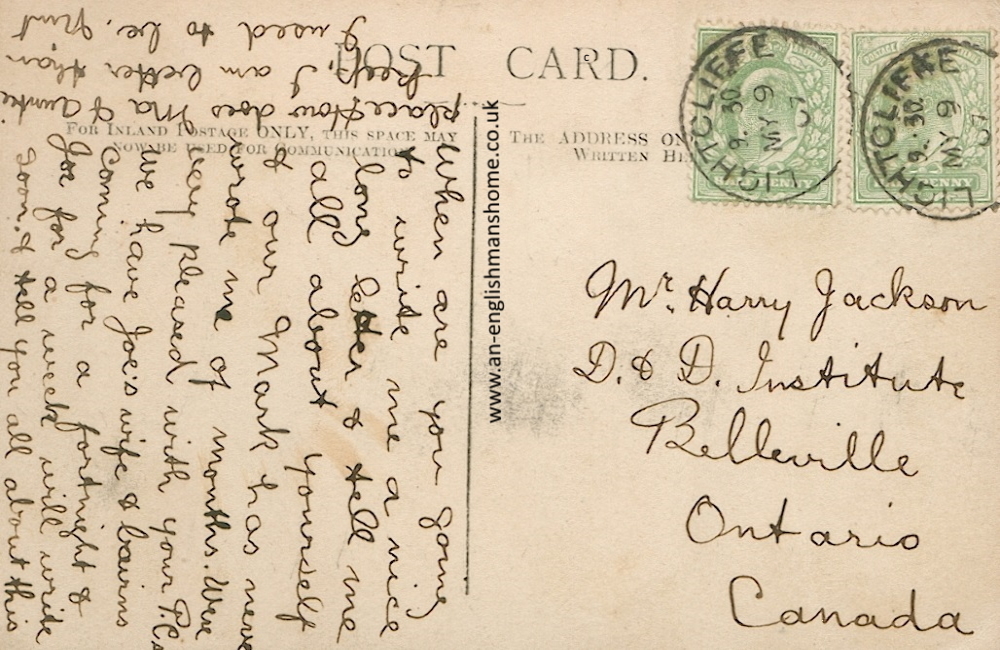 POST CARD.
FOR INLAND POSTAGE ONLY, THIS SPACE MAY
NOW BE USED FOR COMMUNICATION
THE ADDRESS ON
WRITTEN HE
www.an-englishmanshome.co.uk
LIGHTCLIFFE
9. 30
MY 9
07
LIGHTCLIFFE
9. 30
MY 9
07
PENNY
Mr. Harry Jackson
D. & D. Institute
Belleville
Ontario
Canada
When are you going
to write me a nice
long letter & tell me
all about yourself
& our Mark has never
wrote me of months. Were
very pleased with your P.Cs
We have Joe's wife & bairns
Coming for a fortnight &
Joe for a week will write
soon & tell you all about this
place How does Ma & Auntie
keep, I am better than
I used to be,